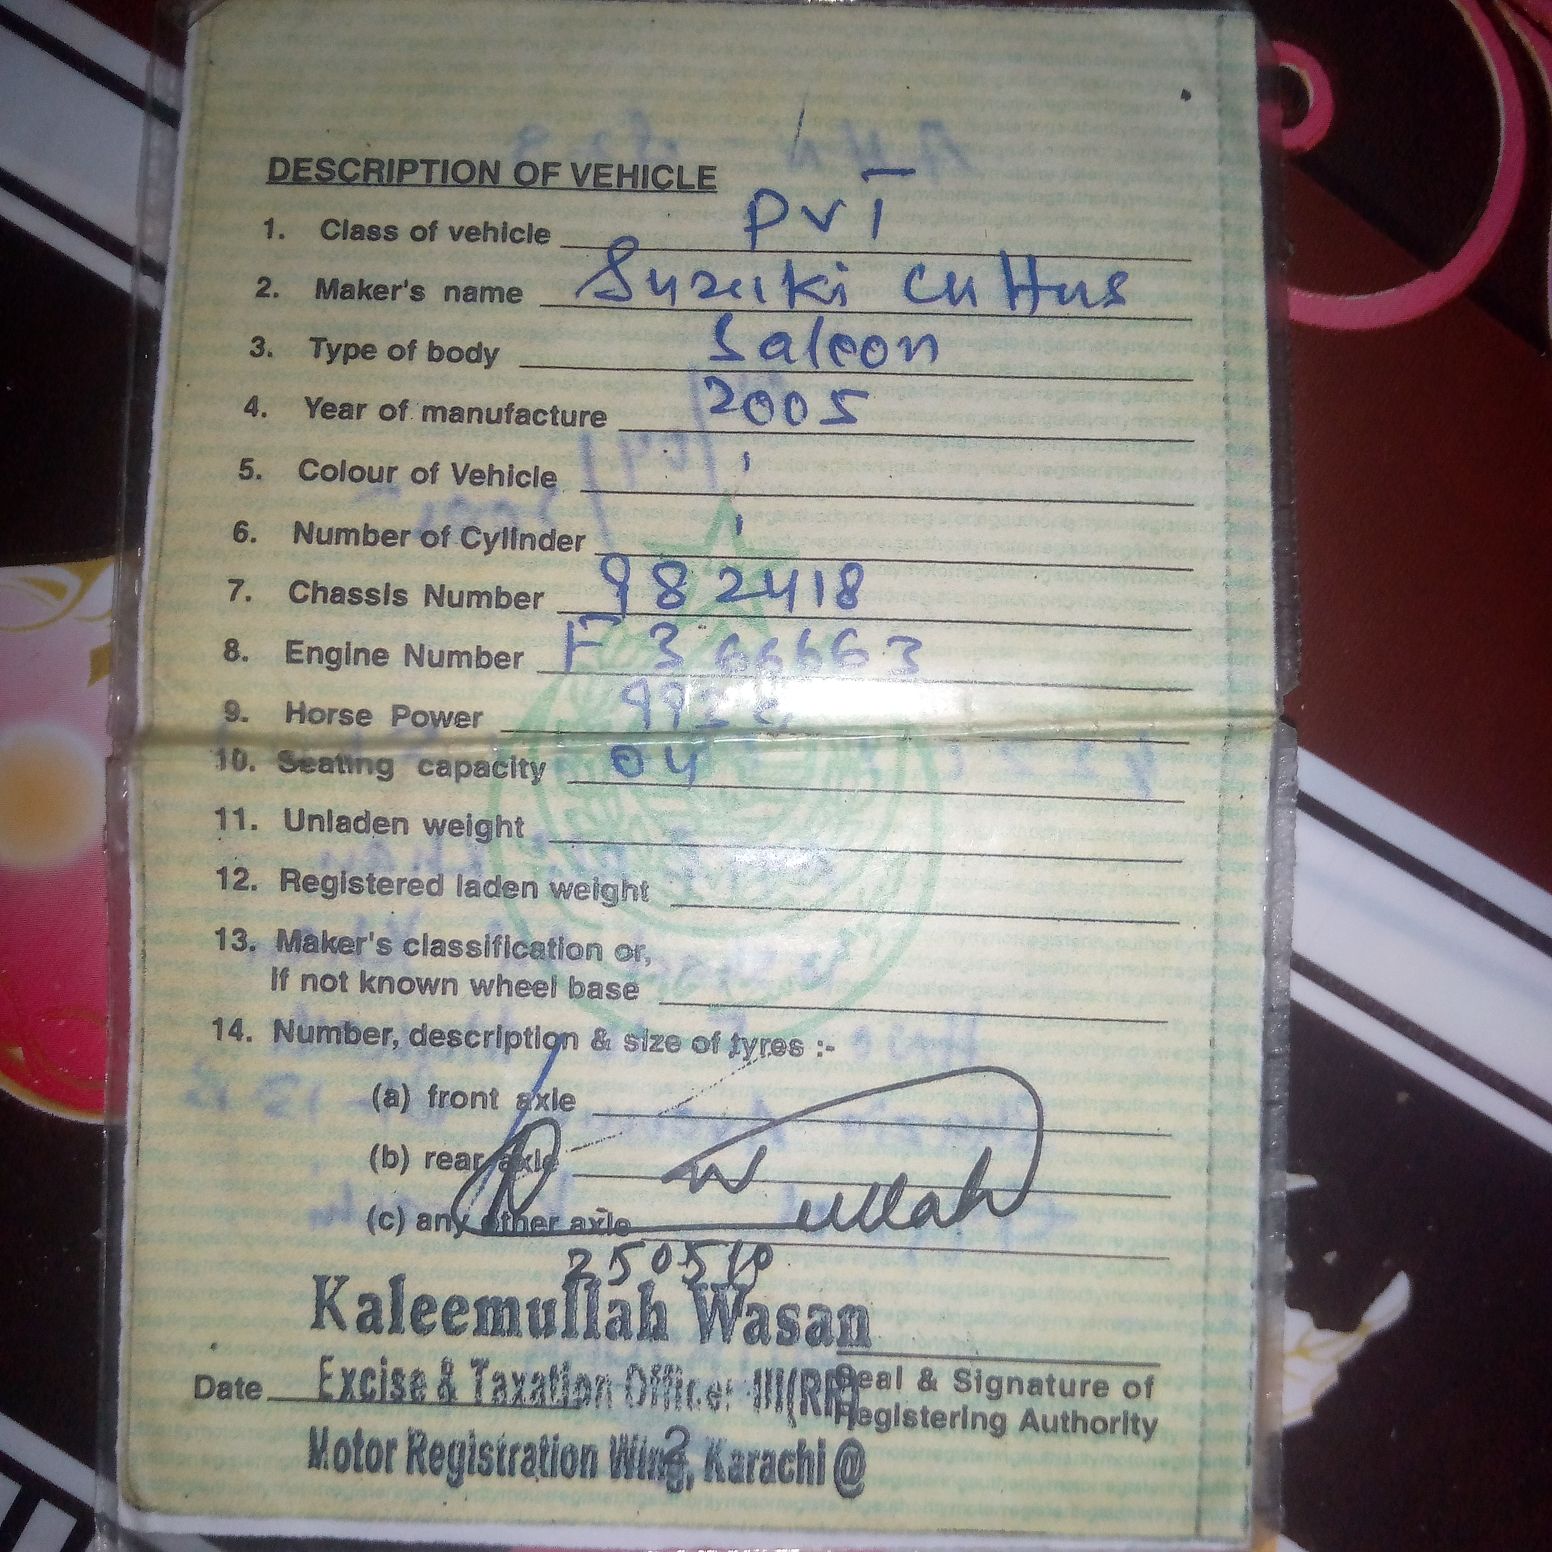 DESCRIPTION OF VEHICLE
1. Class of vehicle PVT
2. Maker's name Suzuki Cultus
3. Type of body Saloon
4. Year of manufacture 2005
5. Colour of Vehicle
6. Number of Cylinder
7. Chassis Number 982418
8. Engine Number F 366663
9. Horse Power
10. Seating capacity 04
11. Unladen weight
12. Registered laden weight
13. Maker's classification or,
If not known wheel base
14. Number, description & size of tyres :-
(a) front axle
(b) rear axle
(c) any other axle
250510
Kaleemullah Wasan
Date Excise & Taxation Officer III(RR) Seal & Signature of
Registering Authority
Motor Registration Wing, Karachi @